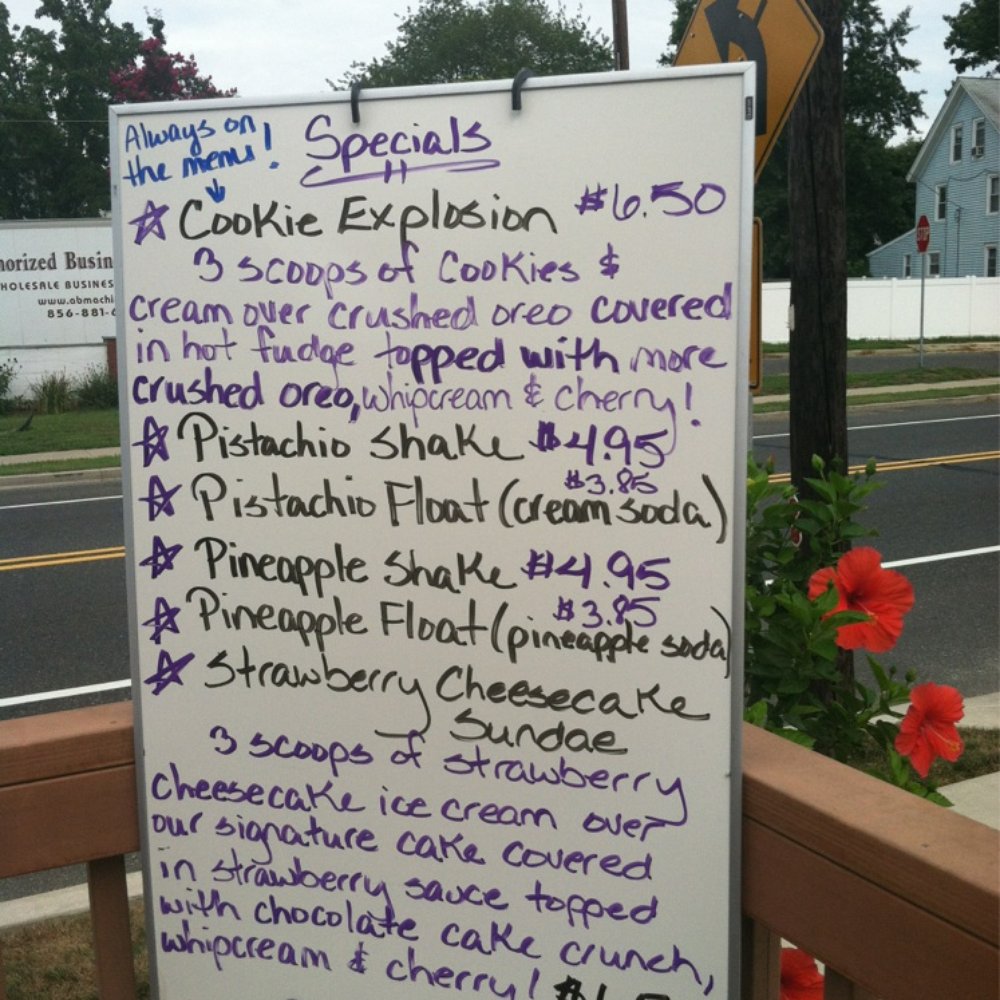 Always on
the menu!
Specials
Cookie Explosion $6.50
3 scoops of Cookies &
cream over crushed oreo covered
in hot fudge topped with more
crushed oreo, whipcream & cherry!
Pistachio Shake $4.95
$3.85
Pistachio Float (cream soda)
Pineapple Shake $4.95
$3.85
Pineapple Float (pineapple soda)
Strawberry Cheesecake
Sundae
3 scoops of strawberry
cheesecake ice cream over
our signature cake covered
in strawberry sauce topped
with chocolate cake crunch,
whipcream & cherry!
horized Busin
HOLESALE BUSINES
www.abmachi
856-881-
STOP